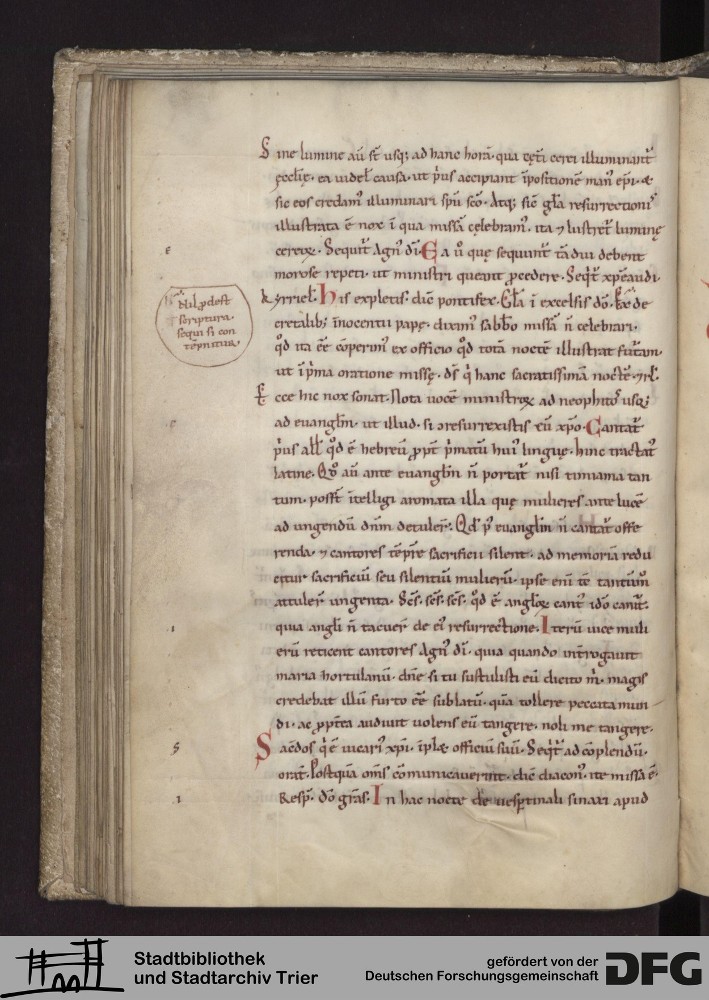 Sine lumine aū st̄ usq; ad hanc horā. qua cęti cerei illuminant᷑
ęcclię. ea videl̄ causa. ut p̄us accipiant īpositionē man᷒ ep̄i. &
sic eos credam᷒ illuminari sp̄u sc̄o. Atq; sic̄ gl̄a resurrection᷒
illustrata ē nox ī qua missā cęlebram᷒. ita ⁊ lustret᷑ luminę
cereoꝝ. Sequit᷑ Agn᷒ dī. Ea ū quę sequunt᷑ tā diu debent
morose repeti. ut ministri queant ꝓcedere. Seqt᷑ xp̄e audi.
& yrriel̄. His expletis. dic̄ pontifex. Gl̄a ī excelsis dō. Ex de
cretalib; īnocentii papę. dixim᷒ sabb̄o missā n̄ celebrari.
qd̄ ita ēē cōperim᷒ ex officio qd̄ totā noctē illustrat
ut ī p̄ma oratione missę. ds̄ q̄ hanc sacratissimā noctē. ⁊rl̄.
Ecce hic nox sonat. Nota vocē ministroꝝ ad neophitos usq;
ad evangl̄m. ut illud. si ↄresurrexistis cū xp̄o. Cantat᷑
p̄us all̄ qd̄ ē hebreū ꝓpt̄ p̄matū hui᷒ linguę. hinc tractat᷒
latine. Qd̄ aū ante evangl̄m n̄ portat᷑ nisi timiama tan
tum. posst̄ ītelligi aromata illa quę mulieres ante lucē
ad ungendū dn̄m detuler̄. Qd̄ p᷒ evangl̄m n̄ cantat᷑ offe
renda. ⁊ cantores tēp̄re sacrificii silent. ad memoriā redu
citur sacrificiū seu silentiū mulierū. ipse eni tē tantūm̊
attuler̄ ungenta. Sc̄s. sc̄s. sc̄s. qd̄ ē angl̄oꝝ cant᷒ idō canit᷑.
quia angl̄i n̄ tacuer̄ de ei᷒ resurrectione. Iterū vice muli
erū reticent cantores Agn᷒ dī. quia quando īntrogavit
maria hortulanū. dn̄e si tu sustulisti eū dicito m̄. magis
credebat illū furto ēē sublatū. quā tollere peccata mun
di. ac ꝓpt̄ea audivit volens eū tangere. noli me tangere.
Sac̄dos q̄ ē vicari᷒ xp̄i. īplet officiū suū. Seqt᷑ ad cōplendū.
orat̄. Postquā om̄s cōmunicaverint. dic̄ diacon᷒. ite missa ē.
Resp̄. dō gr̄as. In hac nocte de vesp̄tinali sinaxi apud
Nil ꝓdest
scriptura.
sequi si con
tēpnitur.
Stadtbibliothek
und Stadtarchiv Trier
gefördert von der
Deutschen Forschungsgemeinschaft
DFG